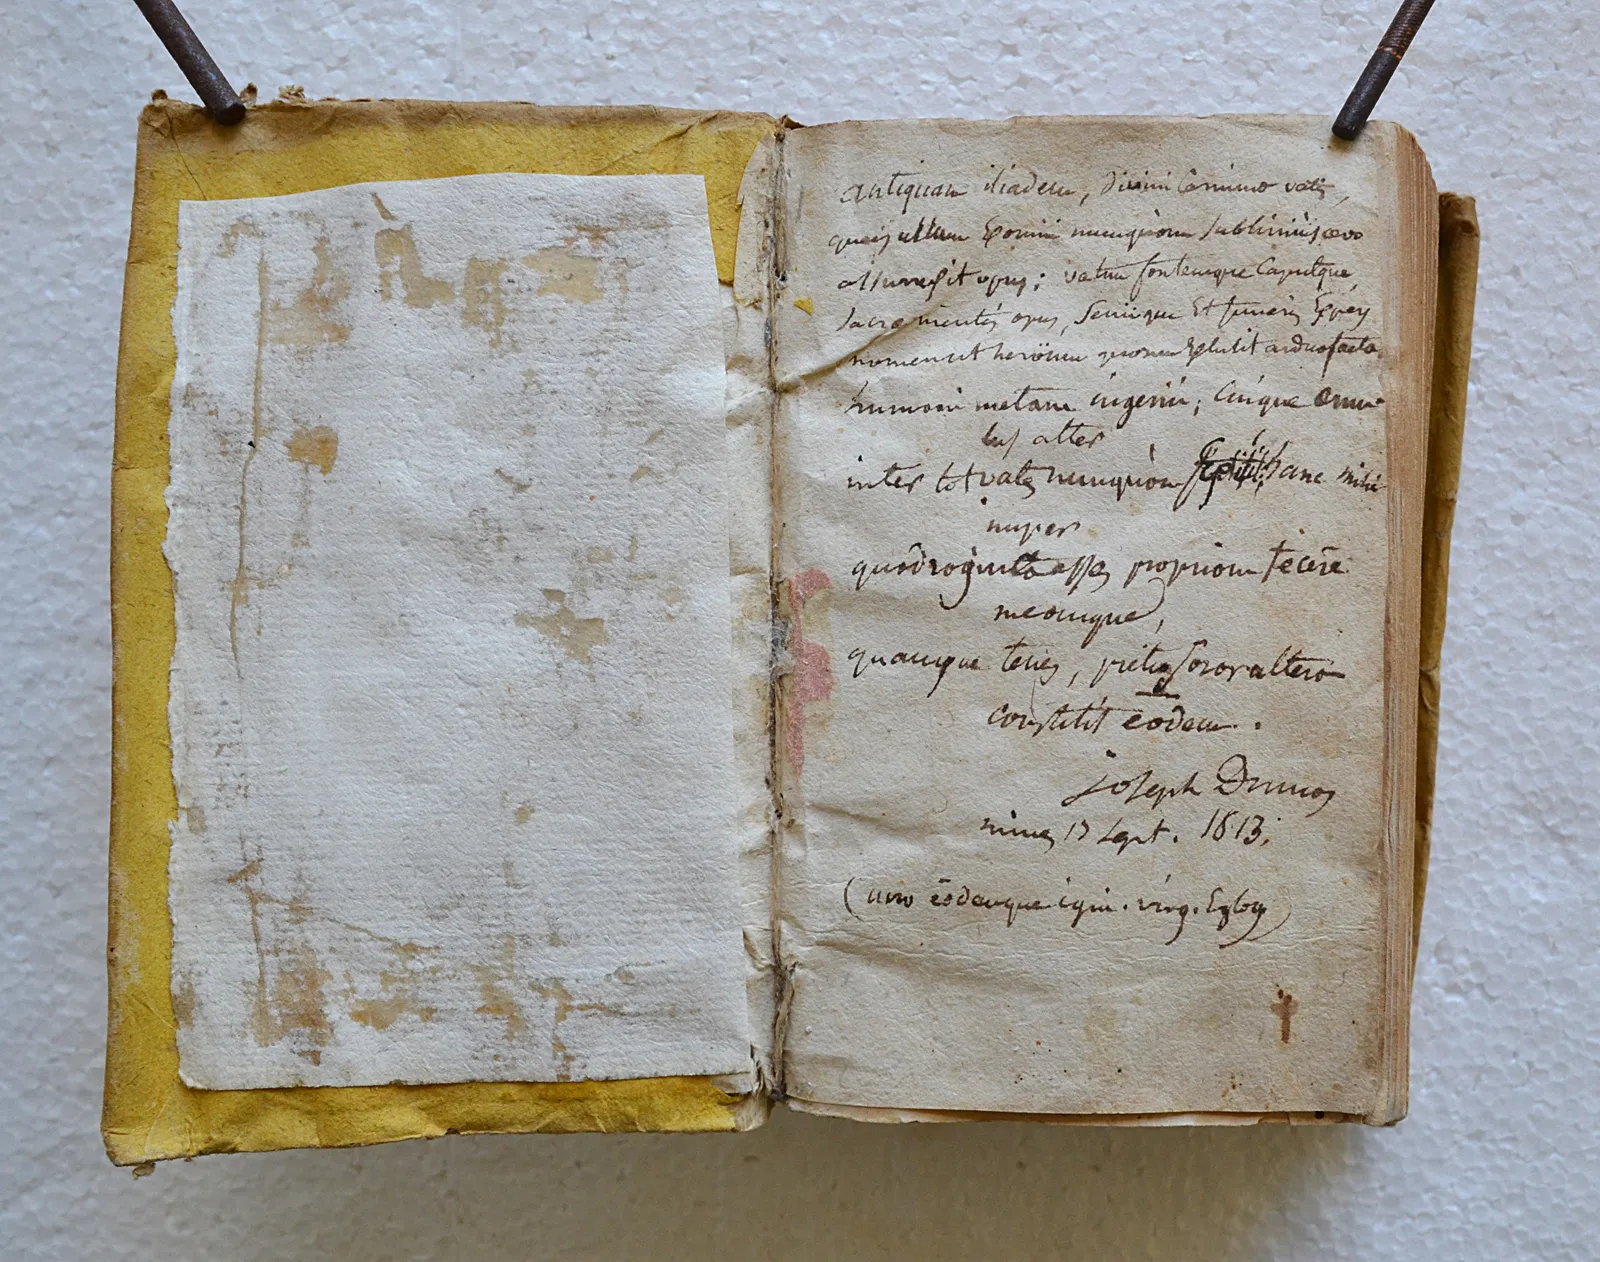 antiquam iliadem, divini Carmina vatis,
queis ullum homini nunquam sublimius ævo
assurrexit opus; vatum fontemque Caputque
sacræ mentis opus, Semique Et funeris
nomen ut heröum quorum Extulit ardua facta
humani metam ingenii; Cuique æmu-
lus alter
inter tot vates nunquàm hanc mihi
nuper
quadraginta asses propriam fecêre
meamque,
quamque tenes, pretio soror altera
constitit ēodem.
joseph
nimes 17 Sept. 1813.
(uno ēodemque igni. virg. Eglog)